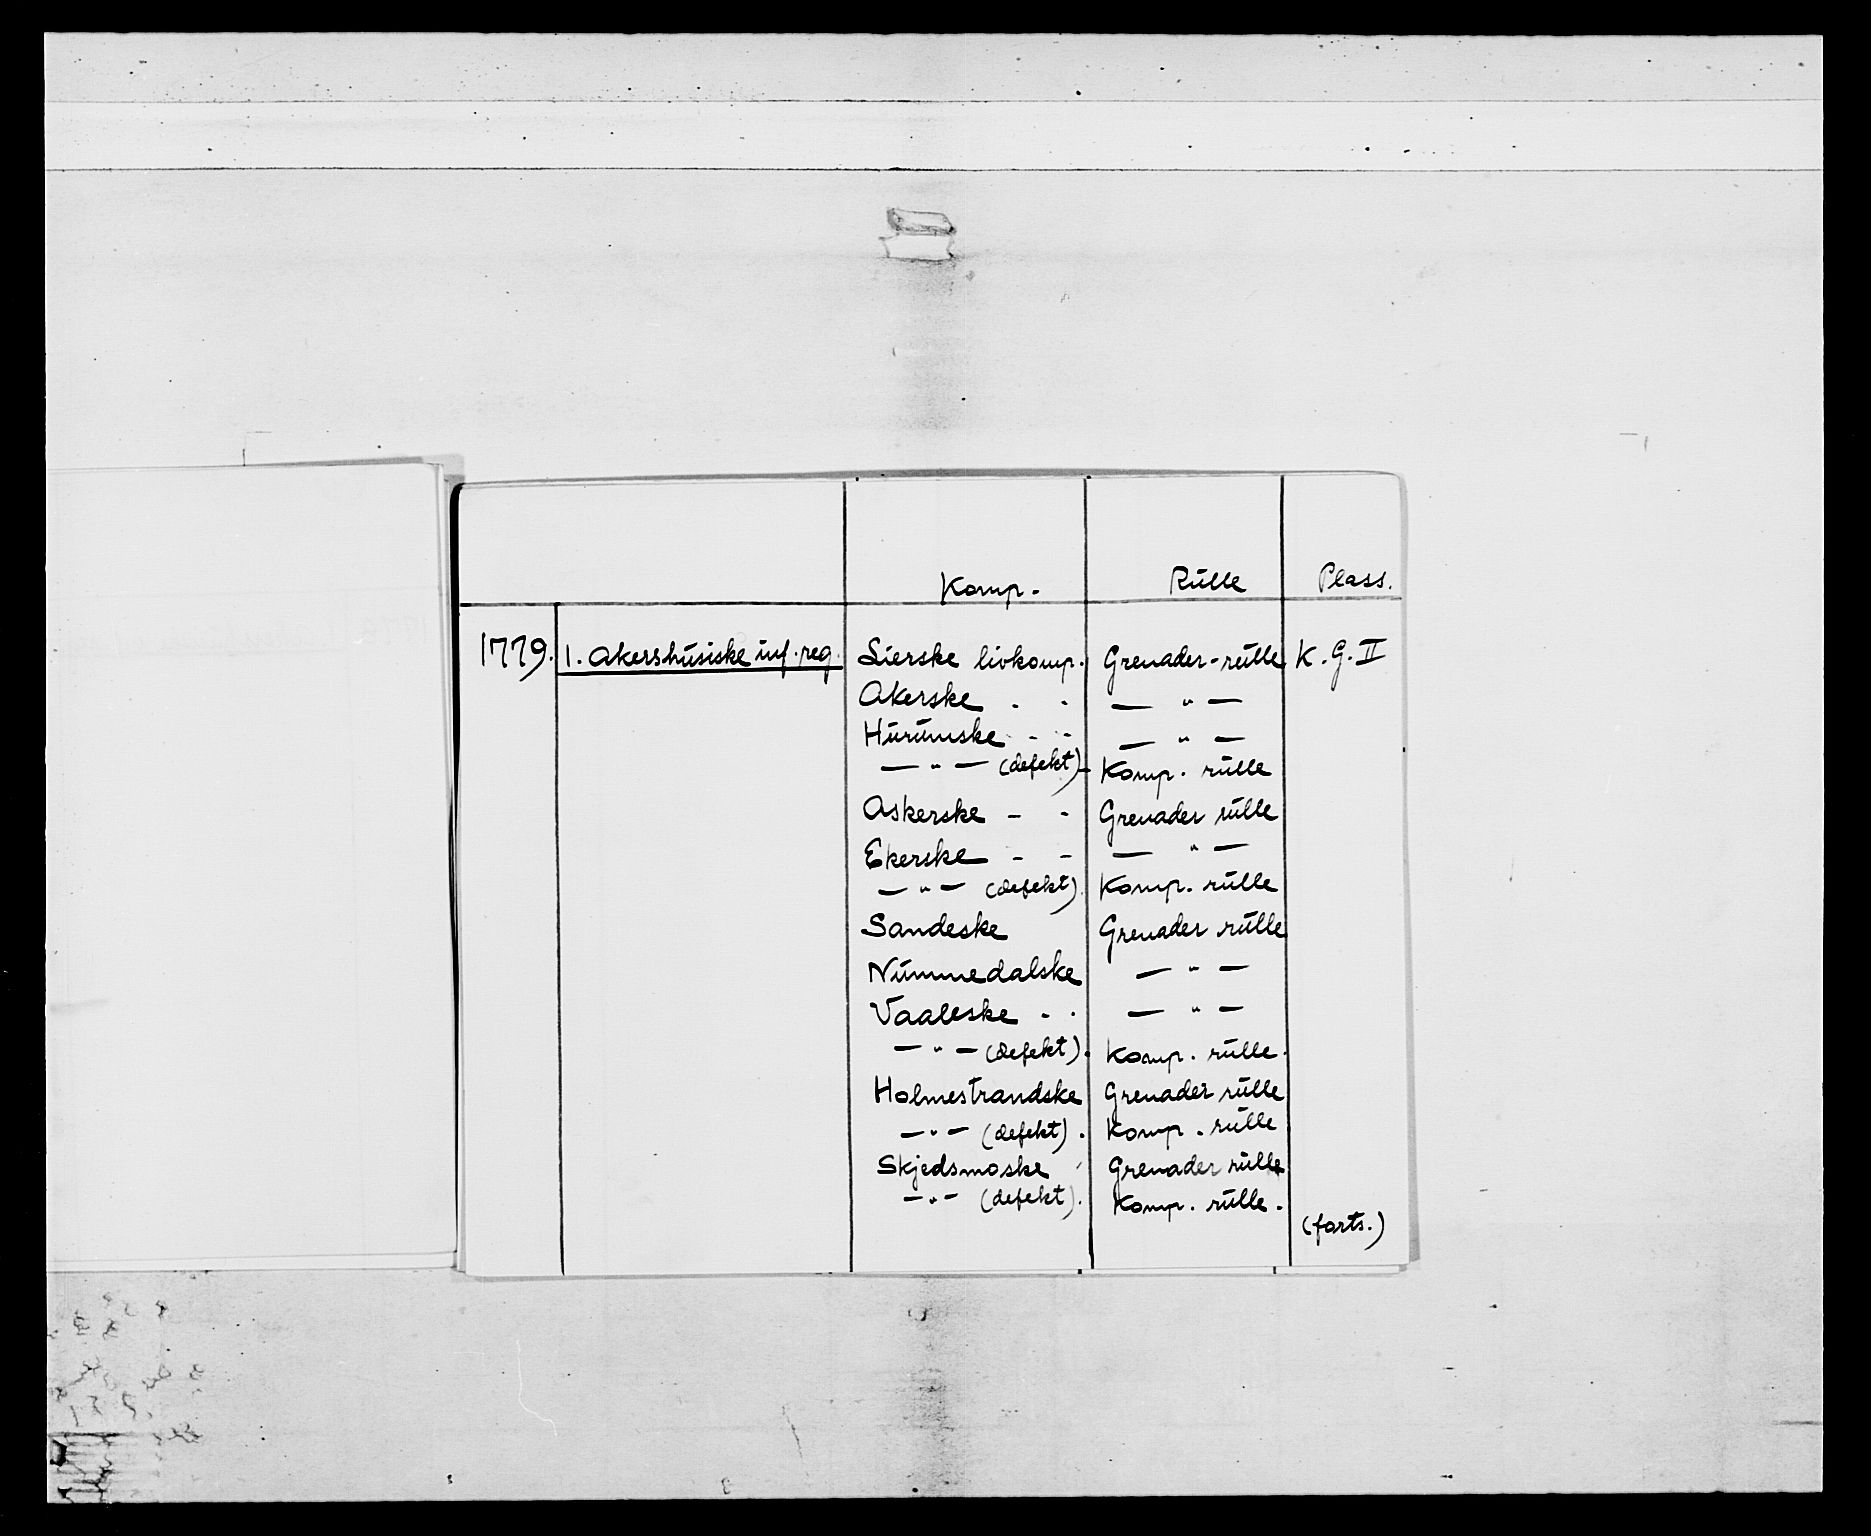 Komp. Rulle Plass.
1779. 1. Akershusiske inf. reg. Sierske livkomp. Grenader-rulle K. G. II
Akerske - - — " —
Hurumske - - — " —
— " — (defekt) - Komp. rulle
Askerske - - Grenader rulle
Ekerske - - — " —
— " — (defekt). Komp. rulle
Sandeske Grenader rulle
Nummedalske — " —
Vaaleske - - — " —
— " — (defekt). Komp. rulle.
Holmestrandske Grenader rulle
— " — (defekt). Komp. rulle
Skjedsmoske Grenader rulle
— " — (defekt). Komp. rulle.
(forts.)